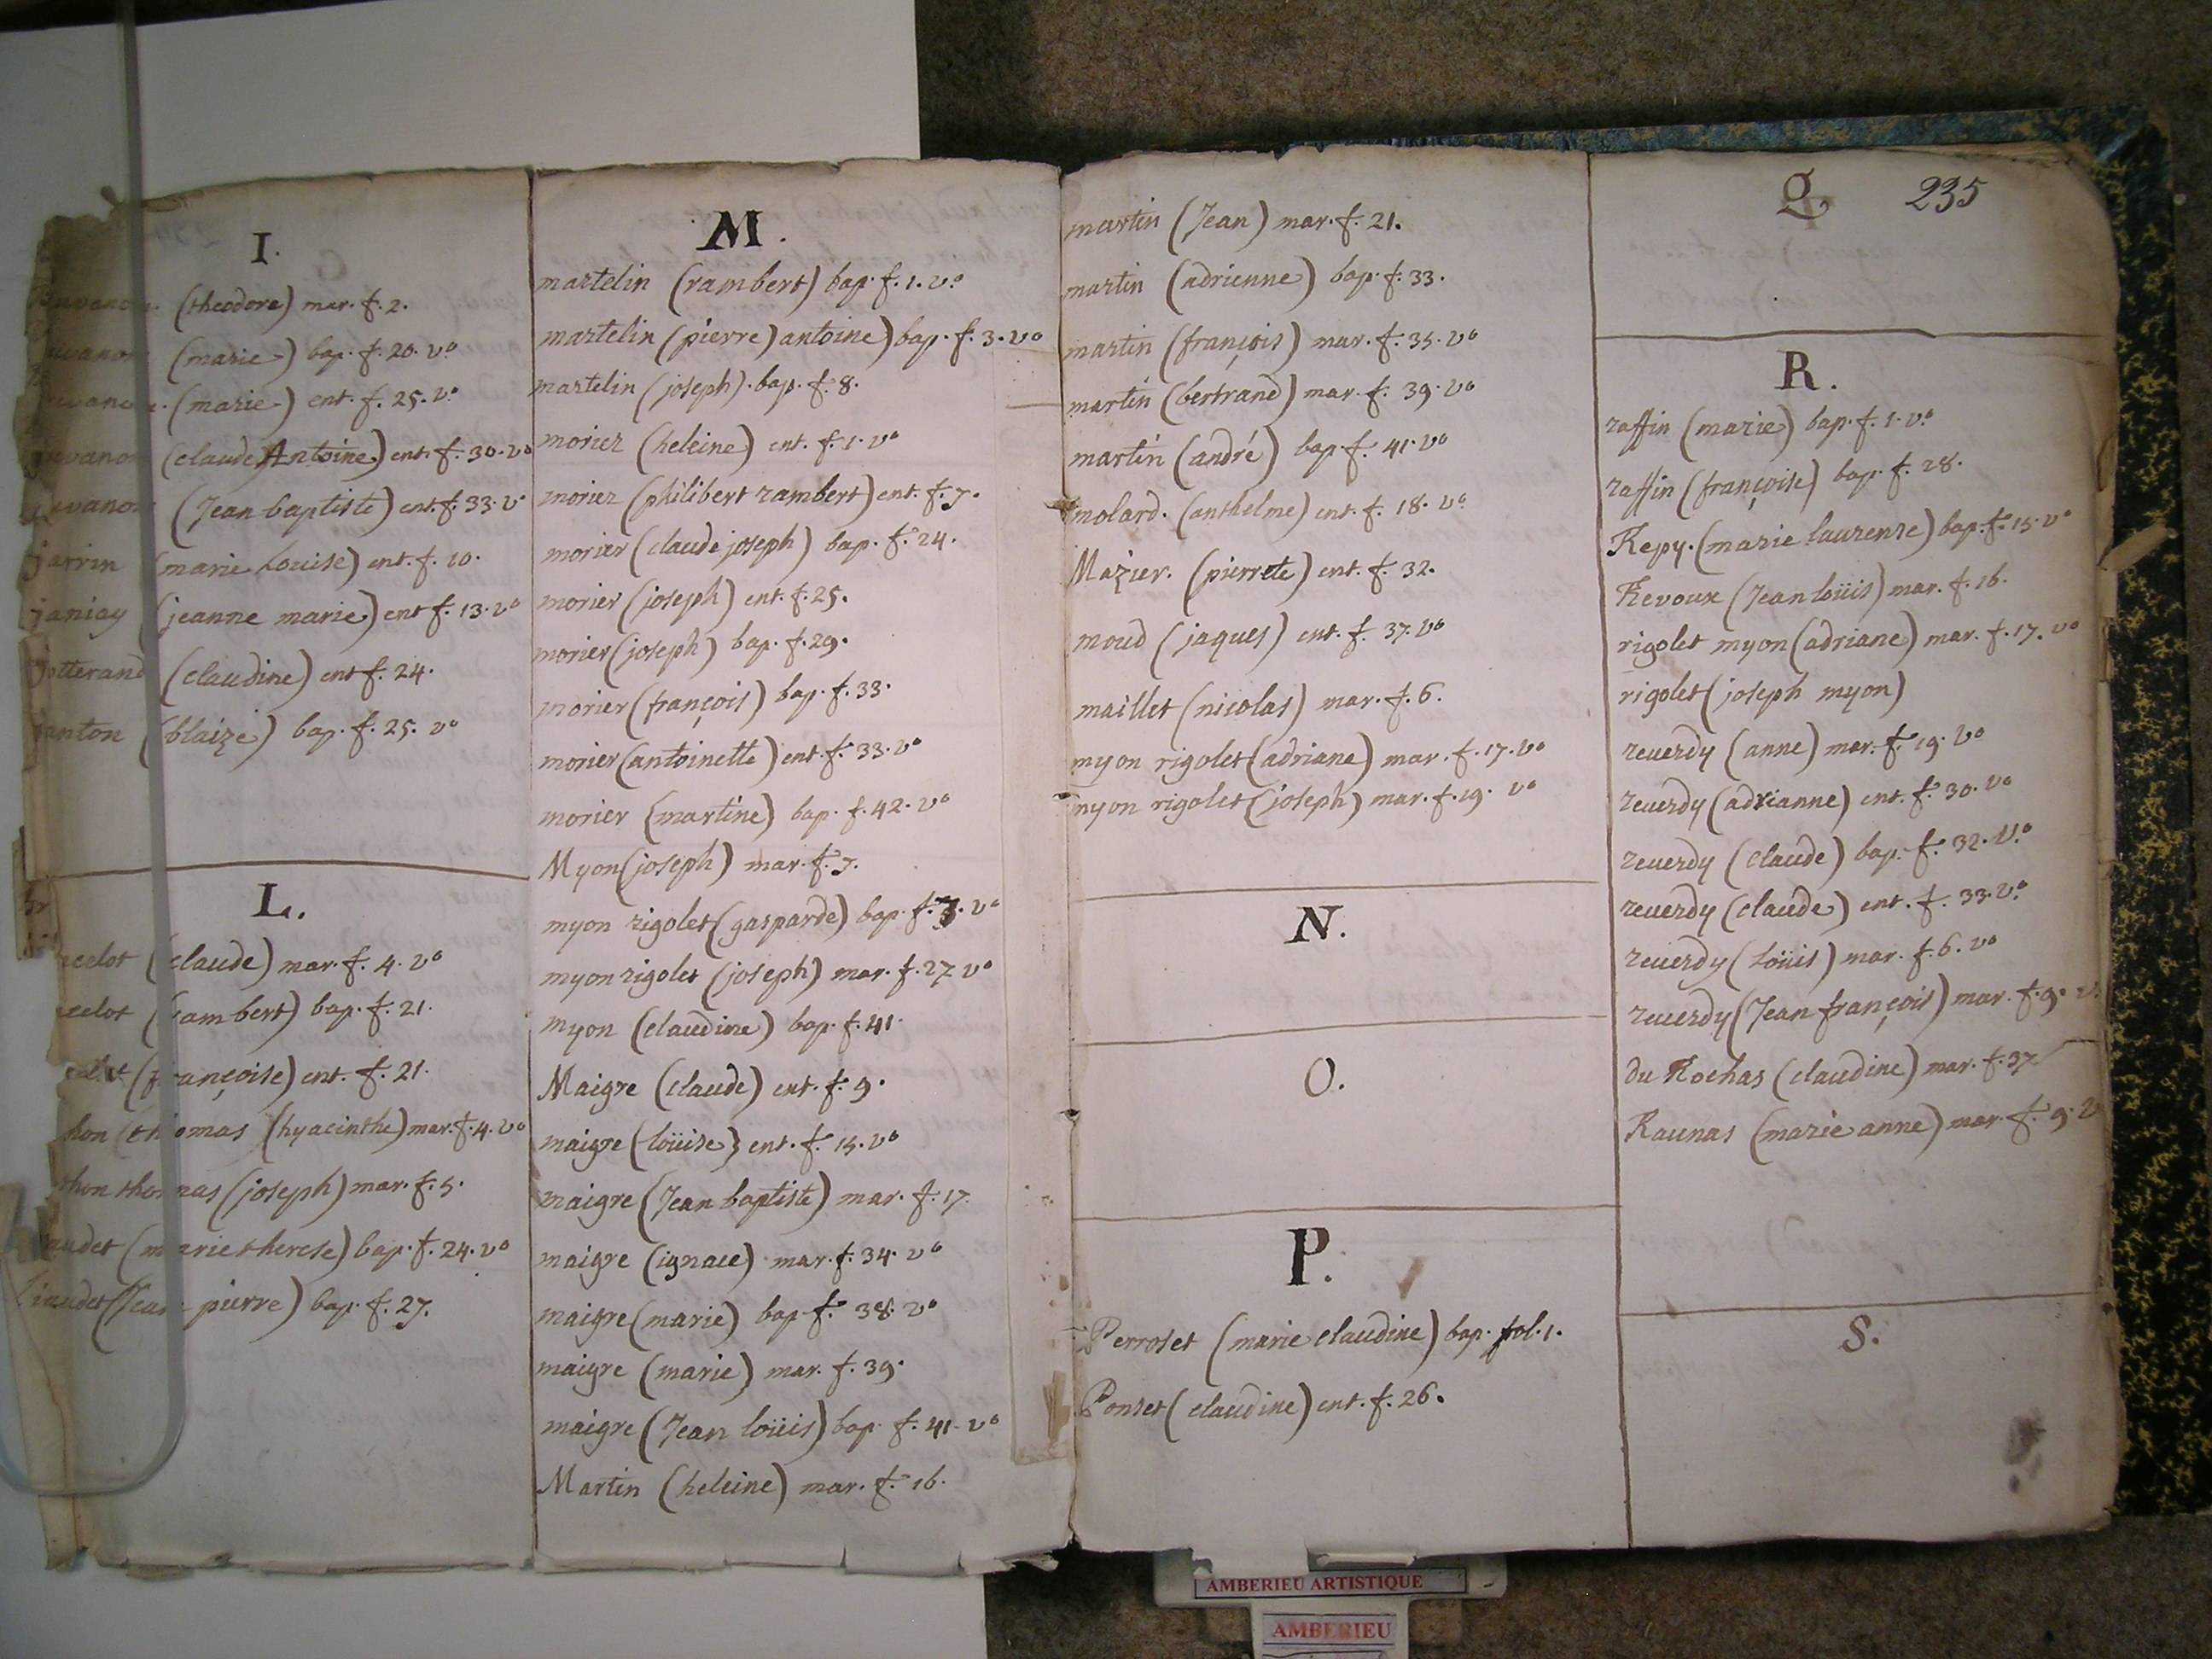 I.
(theodore) mar. f. 2.
(marie) bap. f. 20. vo
(marie) ent. f. 25. vo
(claude Antoine) ent. f. 30. vo
(Jean baptiste) ent. f. 33. v
jarrin (marie Louise) ent. f. 10.
janiay (jeanne marie) ent f. 13. vo
jotterand (claudine) ent f. 24.
janton (blaize) bap. f. 25. vo
L.
(claude) mar. f. 4. vo
(rambert) bap. f. 21.
(françoise) ent. f. 21.
thomas (hyacinthe) mar. f. 4. vo
thomas (joseph) mar. f. 5.
(marie therese) bap. f. 24. vo
(Jean pierre) bap. f. 27.
M.
martelin (rambert) bap. f. 1. vo
martelin (pierre) antoine) bap. f. 3. vo
martelin (joseph). bap. f. 8.
morier (heleine) ent. f. 1. vo
morier (philibert rambert) ent. f. 7.
morier (claude joseph) bap. f. 24.
morier (joseph) ent. f. 25.
morier (joseph) bap. f. 29.
morier (françois) bap. f. 33.
morier (antoinette) ent. f. 33. vo
morier (martine) bap. f. 42. vo
Myon (joseph) mar. f. 7.
myon rigolet (gasparde) bap. f. vo
myon rigolet (joseph) mar. f. 27 vo
myon (claudine) bap. f. 41.
Maigre (claude) ent. f. 9.
maigre (loüise) ent. f. 15. vo
maigre (Jean baptiste) mar. f. 17.
maigre (ignace) mar. f. 34. vo
maigre (marie) bap. f. 38. vo
maigre (marie) mar. f. 39.
maigre (Jean loüis) bap. f. 41. vo
Martin (heleine) mar. f. 16.
martin (Jean) mar. f. 21.
martin (adrienne) bap. f. 33.
martin (françois) mar. f. 35. vo
martin (bertrand) mar. f. 39. vo
martin (andré) bap. f. 41. vo
molard. (anthelme) ent. f. 18. vo
Mazier. (pierrete) ent. f. 32.
moud (jaques) ent. f. 37. vo
maillet (nicolas) mar. f. 6.
myon rigolet (adriane) mar. f. 17. vo
myon rigolet (joseph) mar. f. 19. vo
N.
O.
P.
Perroset (marie claudine) bap. fol. 1.
Ponset (claudine) ent. f. 26.
Q 235
R.
raffin (marie) bap. f. 1. vo
raffin (françoise) bap. f. 28.
Repy. (marie laurense) bap. f. 15. vo
Revoux (Jean loüis) mar. f. 16.
rigolet myon (adriane) mar. f. 17. vo
rigolet (joseph myon)
reuerdy (anne) mar. f. 19. vo
reuerdy (adrianne) ent. f. 30. vo
reuerdy (claude) bap. f. 32. vo
reuerdy (claude) ent. f. 33. vo
reuerdy (Loüis) mar. f. 6. vo
reuerdy (Jean françois) mar. f. 9. v
du Rochas (claudine) mar. f. 37
Raunas (marie anne) mar. f. 9. v
S.
AMBERIEU ARTISTIQUE
AMBERIEU